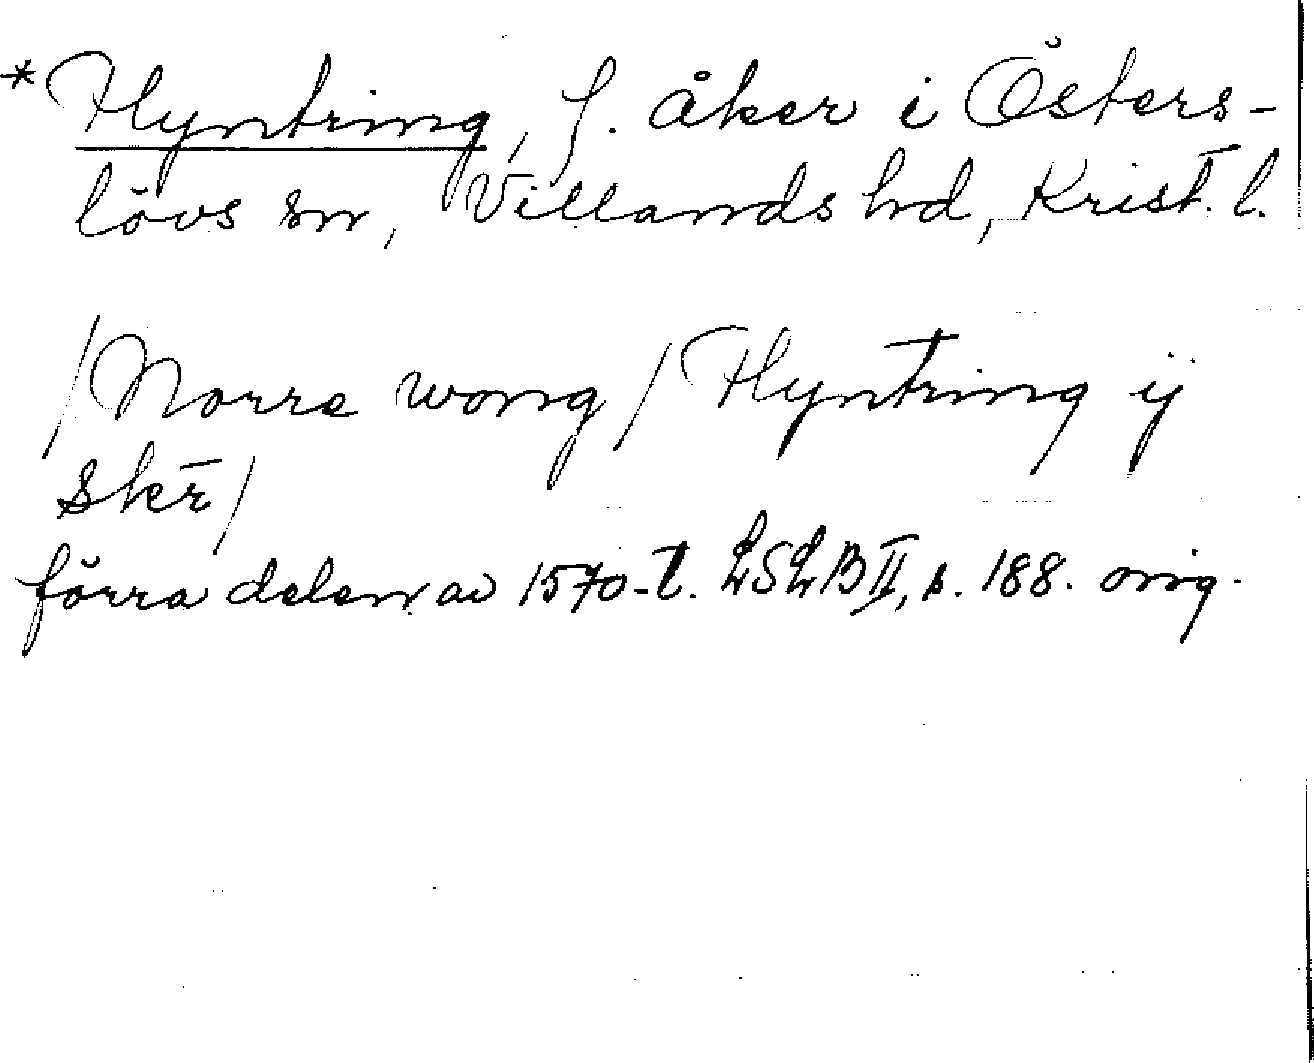 *Hyntring, f. åker i Östers-
lövs sn, Villands hd, Krist. l.
/Norre wong/ Hyntring ij
skr̄/
förra delen av 1570-t. LSLB II, s. 188. orig.